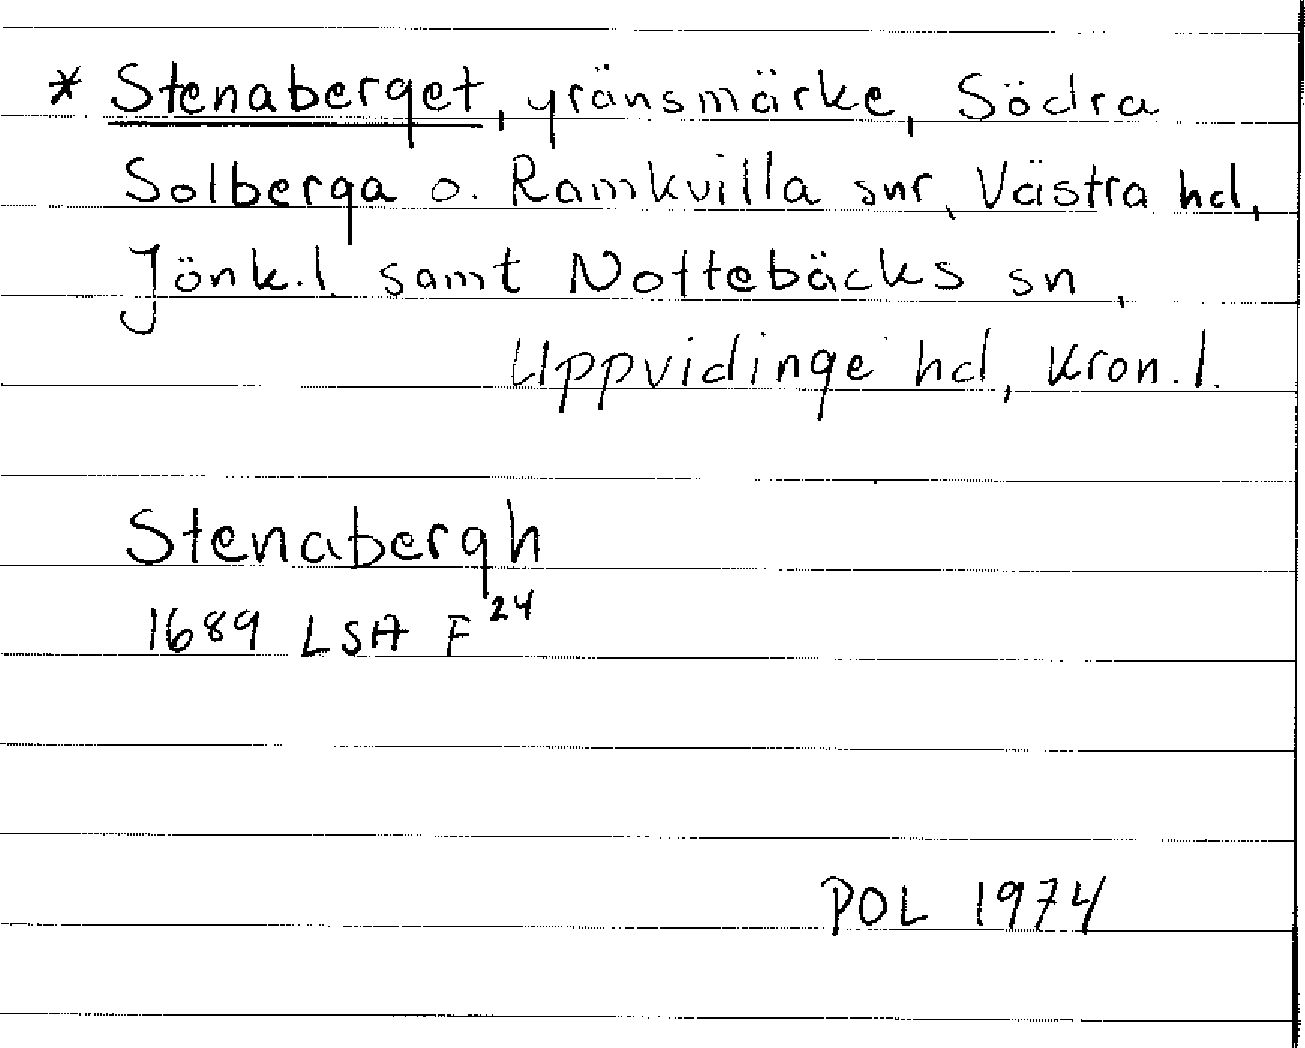 * Stenaberget, gränsmärke, Södra
Solberga o. Ramkvilla snr, Västra hd,
Jönk.l. samt Nottebäcks sn,
Uppvidinge hd, Kron.l.
Stenabergh
1689 LSA F²⁴
POL 1974